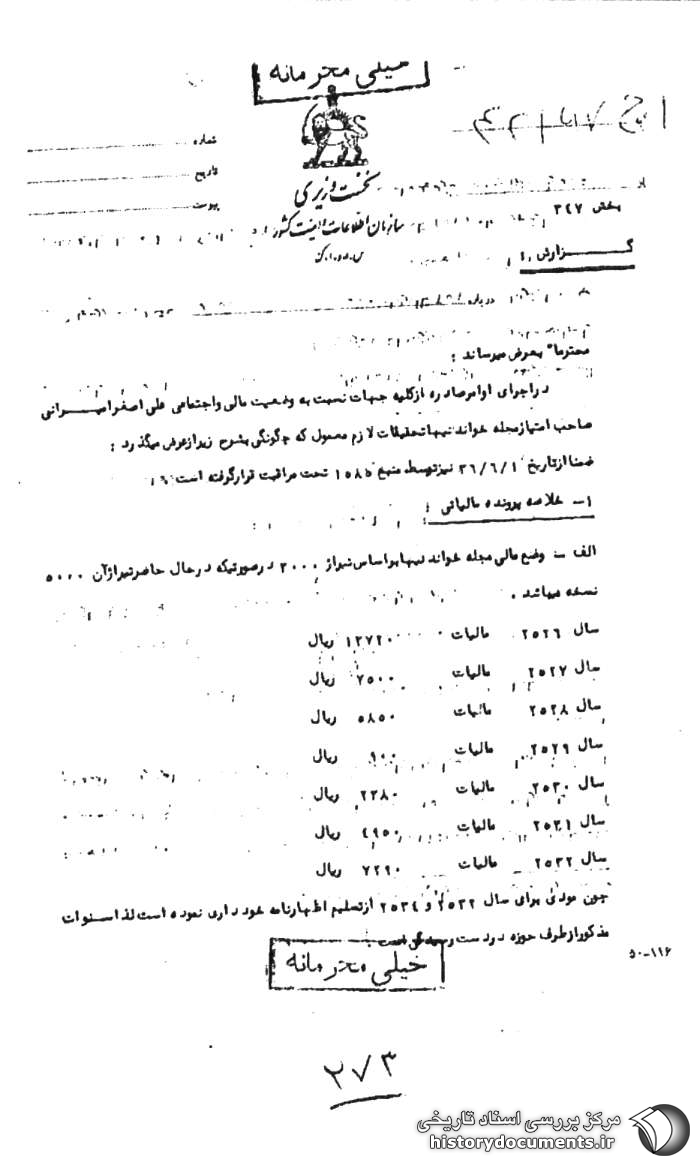 خیلی محرمانه
شماره
تاریخ
پیوست
نخست وزیری
سازمان اطلاعات و امنیت کشور
س.ا.و.ا.ک
بخش ۳۴۷
گزارش
درباره
محترما" بعرض میرساند :
در اجرای اوامر صادره از کلیه جهات نسبت به وضعیت مالی و اجتماعی علی اصغر امیرانی
صاحب امتیاز مجله خواندنیها تحقیقات لازم معمول که چگونگی بشرح زیر از عرض میگذرد :
ضمنا از تاریخ ۳۶/۶/۱ نیز توسط منبع ۱۰۸۵ تحت مراقبت قرار گرفته است
۱- خلاصه پرونده مالیاتی :
الف - وضع مالی مجله خواندنیها بر اساس تیراژ ۲۰۰۰ در صورتیکه در حال حاضر تیراژ آن ۵۰۰۰
نسخه میباشد .
سال ۲۵۲۶ مالیات ۱۲۷۲۰ ریال
سال ۲۵۲۷ مالیات ۷۵۰۰ ریال
سال ۲۵۲۸ مالیات ۵۸۵۰ ریال
سال ۲۵۲۹ مالیات ۹۰۰ ریال
سال ۲۵۳۰ مالیات ۲۲۸۰ ریال
سال ۲۵۳۱ مالیات ۴۹۵۰ ریال
سال ۲۵۳۲ مالیات ۷۲۹۰ ریال
چون مودی برای سال ۲۵۳۳ و ۲۵۳۴ از تسلیم اظهارنامه خودداری نموده است لذا سنوات
مذکور از طرف حوزه در دست رسیدگی است .
۵۰-۱۱۶
خیلی محرمانه
۲۷۳
مرکز بررسی اسناد تاریخی
historydocuments.ir